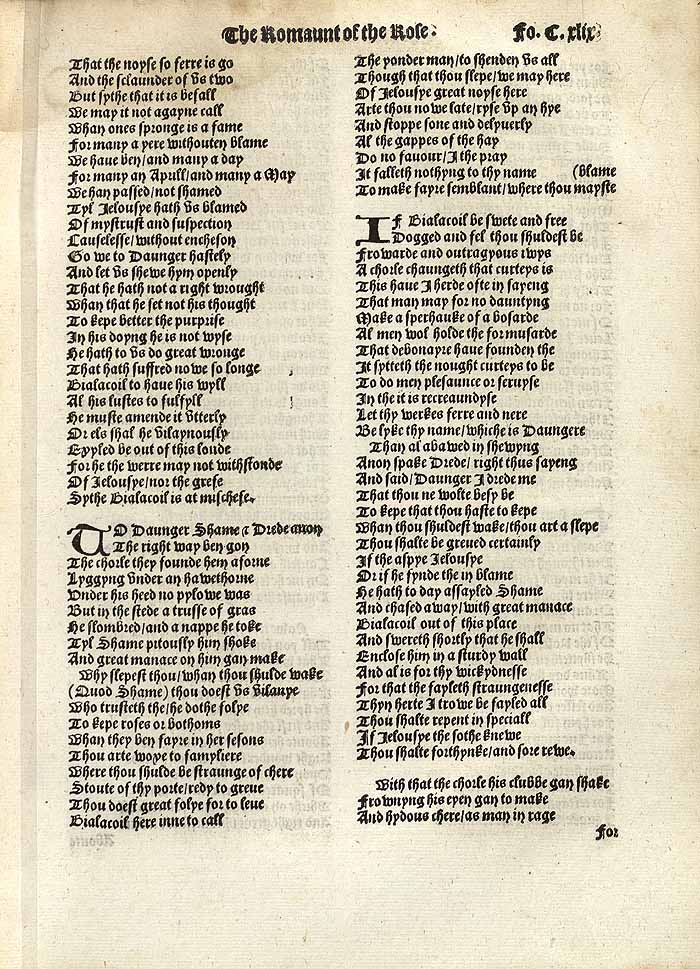 The Romaunt of the Rose.
Fo. C. xlix.
That the noyse so ferre is go
And the sclaunder of vs two
But sythe that it is befall
We may it not agayne call
Whan ones spronge is a fame
For many a yere withouten blame
We haue ben/and many a day
For many an Aprill/and many a May
We han passed/not shamed
Tyl Jelousye hath vs blamed
Of mystrust and suspection
Causelesse/without encheson
Go we to Daunger hastely
And let vs shewe hym openly
That he hath not a right wrought
Whan that he set not his thought
To kepe better the purprise
In his doyng he is not wyse
He hath to vs do great wronge
That hath suffred nowe so longe
Bialacoil to haue his wyll
Al his lustes to fulfyll
He muste amende it vtterly
Or els shal he vilaynously
Exyled be out of this londe
For he the werre may not withstonde
Of Jelousye/nor the grefe
Sythe Bialacoil is at mischefe.
TO Daunger Shame & Drede anon
The right way ben gon
The chorle they founde hem aforne
Lyggyng vnder an hawethorne
Vnder his heed no pylowe was
But in the stede a trusse of gras
He slombred/and a nappe he toke
Tyl Shame pitously him shoke
And great manace on him gan make
Why slepest thou/whan thou shulde wake
(Quod Shame) thou doest vs vilanye
Who trusteth the/he dothe folye
To kepe roses or bothoms
Whan they ben fayre in her sesons
Thou arte woxe to famyliere
Where thou shulde be straunge of chere
Stoute of thy porte/redy to greue
Thou doest great folye for to leue
Bialacoil here inne to call
The yonder man/to shenden vs all
Though that thou slepe/we may here
Of Jelousye great noyse here
Arte thou nowe late/ryse vp an hye
And stoppe sone and delyuerly
Al the gappes of the hay
Do no fauour/I the pray
It falleth nothyng to thy name (blame
To make fayre semblant/where thou mayste
IF Bialacoil be swete and free
Dogged and fel thou shuldest be
Frowarde and outragyous iwys
A chorle chaungeth that curteys is
This haue I herde ofte in sayeng
That man may for no dauntyng
Make a sperhauke of a bosarde
Al men wol holde the for musarde
That debonayre haue founden the
It sytteth the nought curteys to be
To do men plesaunce or seruyse
In the it is recreaundyse
Let thy werkes ferre and nere
Be lyke thy name/whiche is Daungere
Than al abawed in shewyng
Anon spake Drede/right thus sayeng
And said/Daunger I drede me
That thou ne wolte besy be
To kepe that thou haste to kepe
Whan thou shuldest wake/thou art a slepe
Thou shalte be greued certainly
If the aspye Jelousye
Or if he fynde the in blame
He hath to day assayled Shame
And chased away/with great manace
Bialacoil out of this place
And swereth shortly that he shall
Enclose him in a sturdy wall
And al is for thy wickydnesse
For that the fayleth straungenesse
Thyn herte I trowe be fayled all
Thou shalte repent in speciall
If Jelousye the sothe knewe
Thou shalte forthynke/and sore rewe.
With that the chorle his clubbe gan shake
Frownyng his eyen gan to make
And hydous chere/as man in rage
For